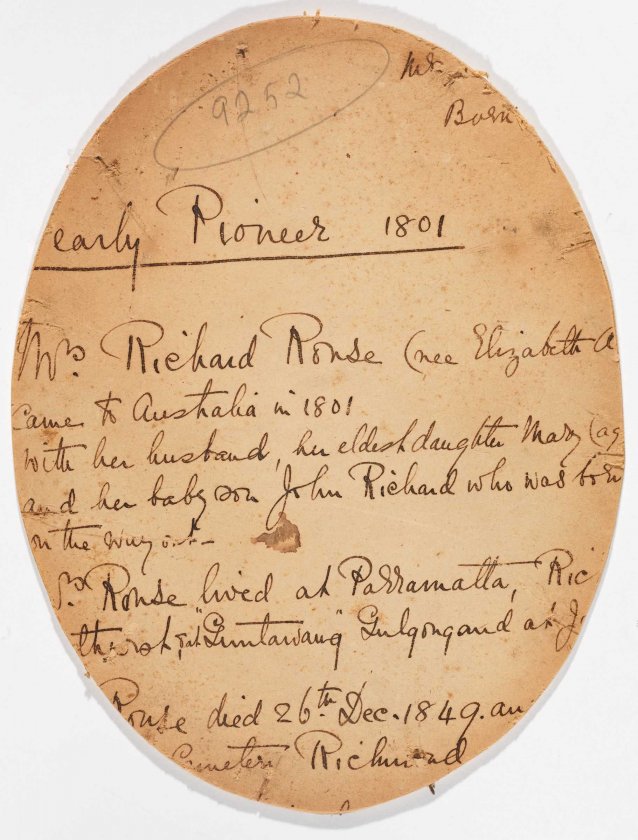 9252
Mr
Born
early Pioneer 1801
Mrs Richard Rouse (nee Elizabeth A
came to Australia in 1801
with her husband, her eldest daughter Mary (ag
and her baby son John Richard who was born
on the way out -
Rouse lived at Parramatta, Ric
at "Guntawang" Gulgong and at J
Rouse died 26th Dec. 1849. an
Cemetery Richmond